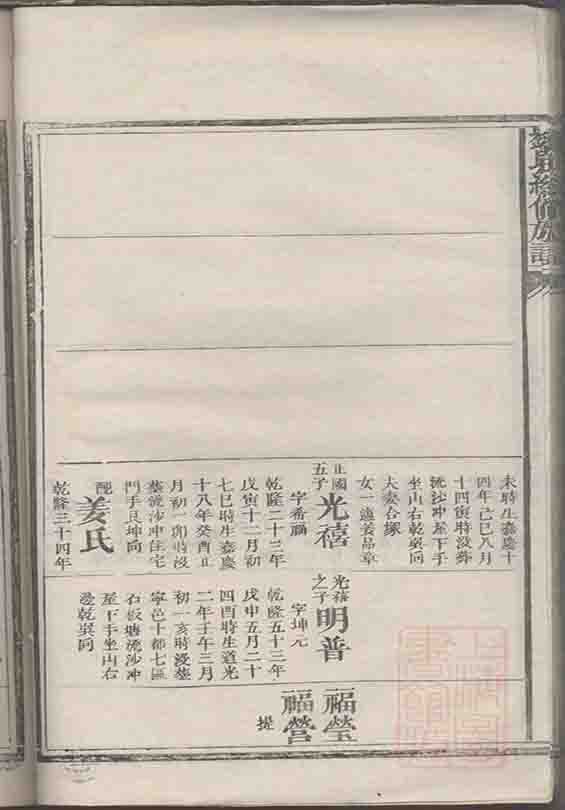 續修族譜
未時生嘉慶十
四年己巳八月
十四寅時沒葬
流沙沖屋下手
坐山右乾巽向
夫妻合塚
女一適姜品章
正國
五子
光禧
字希禧
乾隆二十三年
戊寅十二月初
七巳時生嘉慶
十八年癸酉正
月初一卯時沒
葬流沙沖住宅
門手艮坤向
配
姜氏
乾隆三十四年
光禧
之子
明普
字坤元
乾隆五十三年
戊申五月二十
四酉時生道光
二年壬午三月
初一亥時沒葬
寧邑十都七區
石板塘流沙沖
屋下手坐山右
邊乾巽向
福瑩
福營
提